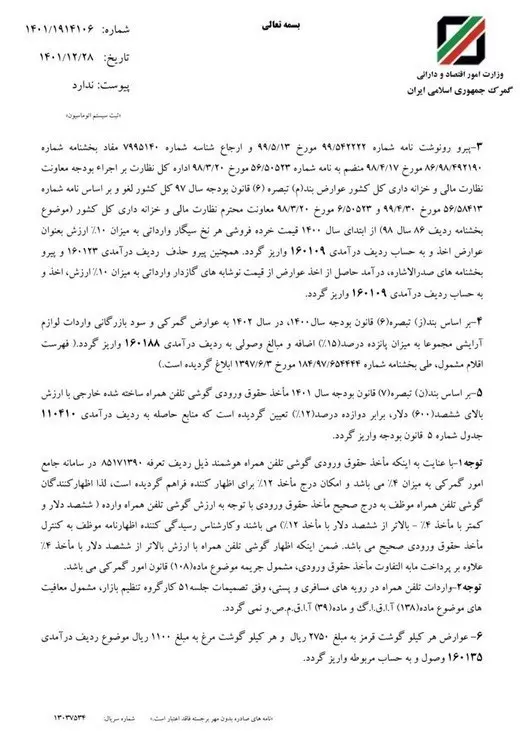 بسمه تعالی
شماره: ۱۴۰۱/۱۹۱۴۱۰۶
تاریخ: ۱۴۰۱/۱۲/۲۸
پیوست: ندارد
«ثبت سیستم اتوماسیون»
وزارت امور اقتصاد و دارائی
گمرک جمهوری اسلامی ایران
۳-پیرو رونوشت نامه شماره ۹۹/۵۴۲۲۲۲ مورخ ۹۹/۵/۱۳ و ارجاع شناسه شماره ۷۹۹۵۱۴۰ مفاد بخشنامه شماره
۸۶/۹۸/۴۹۲۱۹۰ مورخ ۹۸/۴/۱۷ منضم به نامه شماره ۵۶/۵۰۵۲۳ مورخ ۹۸/۳/۲۰ اداره کل نظارت بر اجراء بودجه معاونت
نظارت مالی و خزانه داری کل کشور عوارض بند(م) تبصره (۶) قانون بودجه سال ۹۷ کل کشور لغو و بر اساس نامه شماره
۵۶/۵۸۴۱۳ مورخ ۹۹/۴/۳۰ و ۶/۵۰۵۲۳ مورخ ۹۸/۳/۲۰ معاونت محترم نظارت مالی و خزانه داری کل کشور (موضوع
بخشنامه ردیف ۸۶ سال ۹۸) از ابتدای سال ۱۴۰۰ قیمت خرده فروشی هر نخ سیگار وارداتی به میزان ۱۰٪ ارزش بعنوان
عوارض اخذ و به حساب ردیف درآمدی ۱۶۰۱۰۹ واریز گردد. همچنین پیرو حذف ردیف درآمدی ۱۶۰۱۲۳ و پیرو
بخشنامه های صدرالاشاره، درآمد حاصل از اخذ عوارض از قیمت نوشابه های گازدار وارداتی به میزان ۱۰٪ ارزش، اخذ و
به حساب ردیف درآمدی ۱۶۰۱۰۹ واریز گردد.
۴- بر اساس بند(ز) تبصره(۶) قانون بودجه سال۱۴۰۰، در سال ۱۴۰۲ به عوارض گمرکی و سود بازرگانی واردات لوازم
آرایشی مجموعا به میزان پانزده درصد(۱۵٪) اضافه و مبالغ وصولی به ردیف درآمدی ۱۶۰۱۸۸ واریز گردد.( فهرست
اقلام مشمول، طی بخشنامه شماره ۱۸۴/۹۷/۶۵۴۴۴۴ مورخ ۱۳۹۷/۶/۳ ابلاغ گردیده است.)
۵- بر اساس بند(ن) تبصره(۷) قانون بودجه سال ۱۴۰۱ مأخذ حقوق ورودی گوشی تلفن همراه ساخته شده خارجی با ارزش
بالای ششصد(۶۰۰) دلار، برابر دوازده درصد(۱۲٪) تعیین گردیده است که منابع حاصله به ردیف درآمدی ۱۱۰۴۱۰
جدول شماره ۵ قانون بودجه واریز گردد.
توجه۱-با عنایت به اینکه مأخذ حقوق ورودی گوشی تلفن همراه هوشمند ذیل ردیف تعرفه ۸۵۱۷۱۳۹۰ در سامانه جامع
امور گمرکی به میزان ۴٪ می باشد و امکان درج مأخذ ۱۲٪ برای اظهار کننده فراهم گردیده است، لذا اظهارکنندگان
گوشی تلفن همراه موظف به درج صحیح مأخذ حقوق ورودی با توجه به ارزش گوشی تلفن همراه وارده ( ششصد دلار و
کمتر با مأخذ ۴٪ - بالاتر از ششصد دلار با مأخذ ۱۲٪) می باشند وکارشناس رسیدگی کننده اظهارنامه موظف به کنترل
مأخذ حقوق ورودی صحیح می باشد. ضمن اینکه اظهار گوشی تلفن همراه با ارزش بالاتر از ششصد دلار با مأخذ ۴٪
علاوه بر پرداخت مابه التفاوت مأخذ حقوق ورودی، مشمول جریمه موضوع ماده(۱۰۸) قانون امور گمرکی می باشد.
توجه۲-واردات تلفن همراه در رویه های مسافری و پستی، وفق تصمیمات جلسه۵۱ کارگروه تنظیم بازار، مشمول معافیت
های موضوع ماده(۱۳۸) آ.ا.ق.ا.گ و ماده(۳۹) آ.ا.ق.م.ص.و نمی گردد.
۶- عوارض هر کیلو گوشت قرمز به مبلغ ۲۷۵۰ ریال و هر کیلو گوشت مرغ به مبلغ ۱۱۰۰ ریال موضوع ردیف درآمدی
۱۶۰۱۳۵ وصول و به حساب مربوطه واریز گردد.
«نامه های صادره بدون مهر برجسته فاقد اعتبار است.» شماره سریال: ۱۳۰۳۷۵۳۴